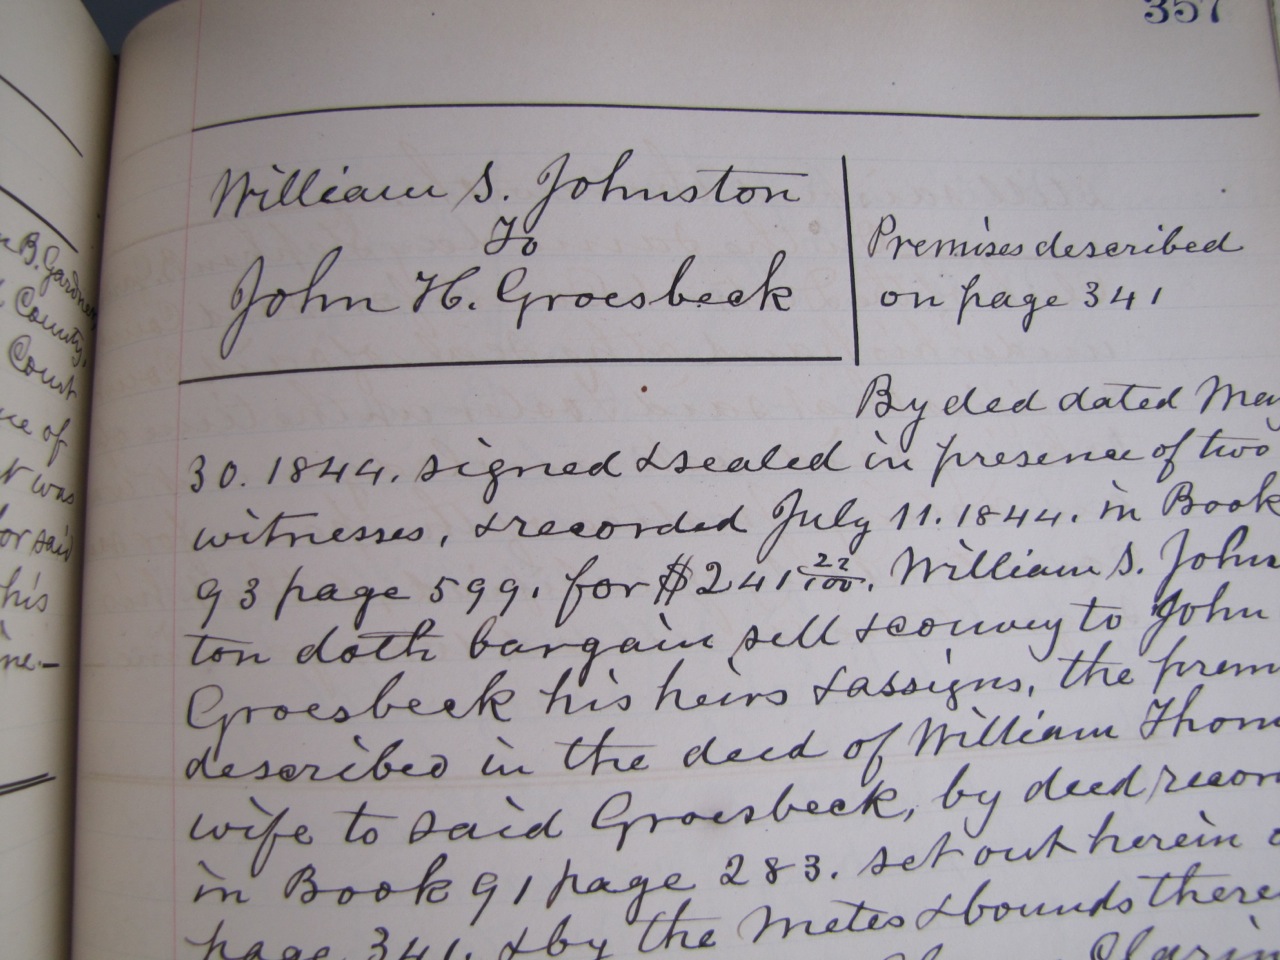 357
William S. Johnston
To
John H. Groesbeck
Premises described
on page 341
By ded dated May
30. 1844. signed & sealed in presence of two
witnesses, & recorded July 11. 1844. in Book
93 page 599. for $241 22/100. William S. Johns
ton doth bargain sell & convey to John
Groesbeck his heirs & assigns, the prem
described in the deed of William Thom
wife to said Groesbeck, by deed recor
in Book 91 page 283. set out herein
page 341. & by the metes & bounds there
B. Gardner
County.
Court
of
was
said
his